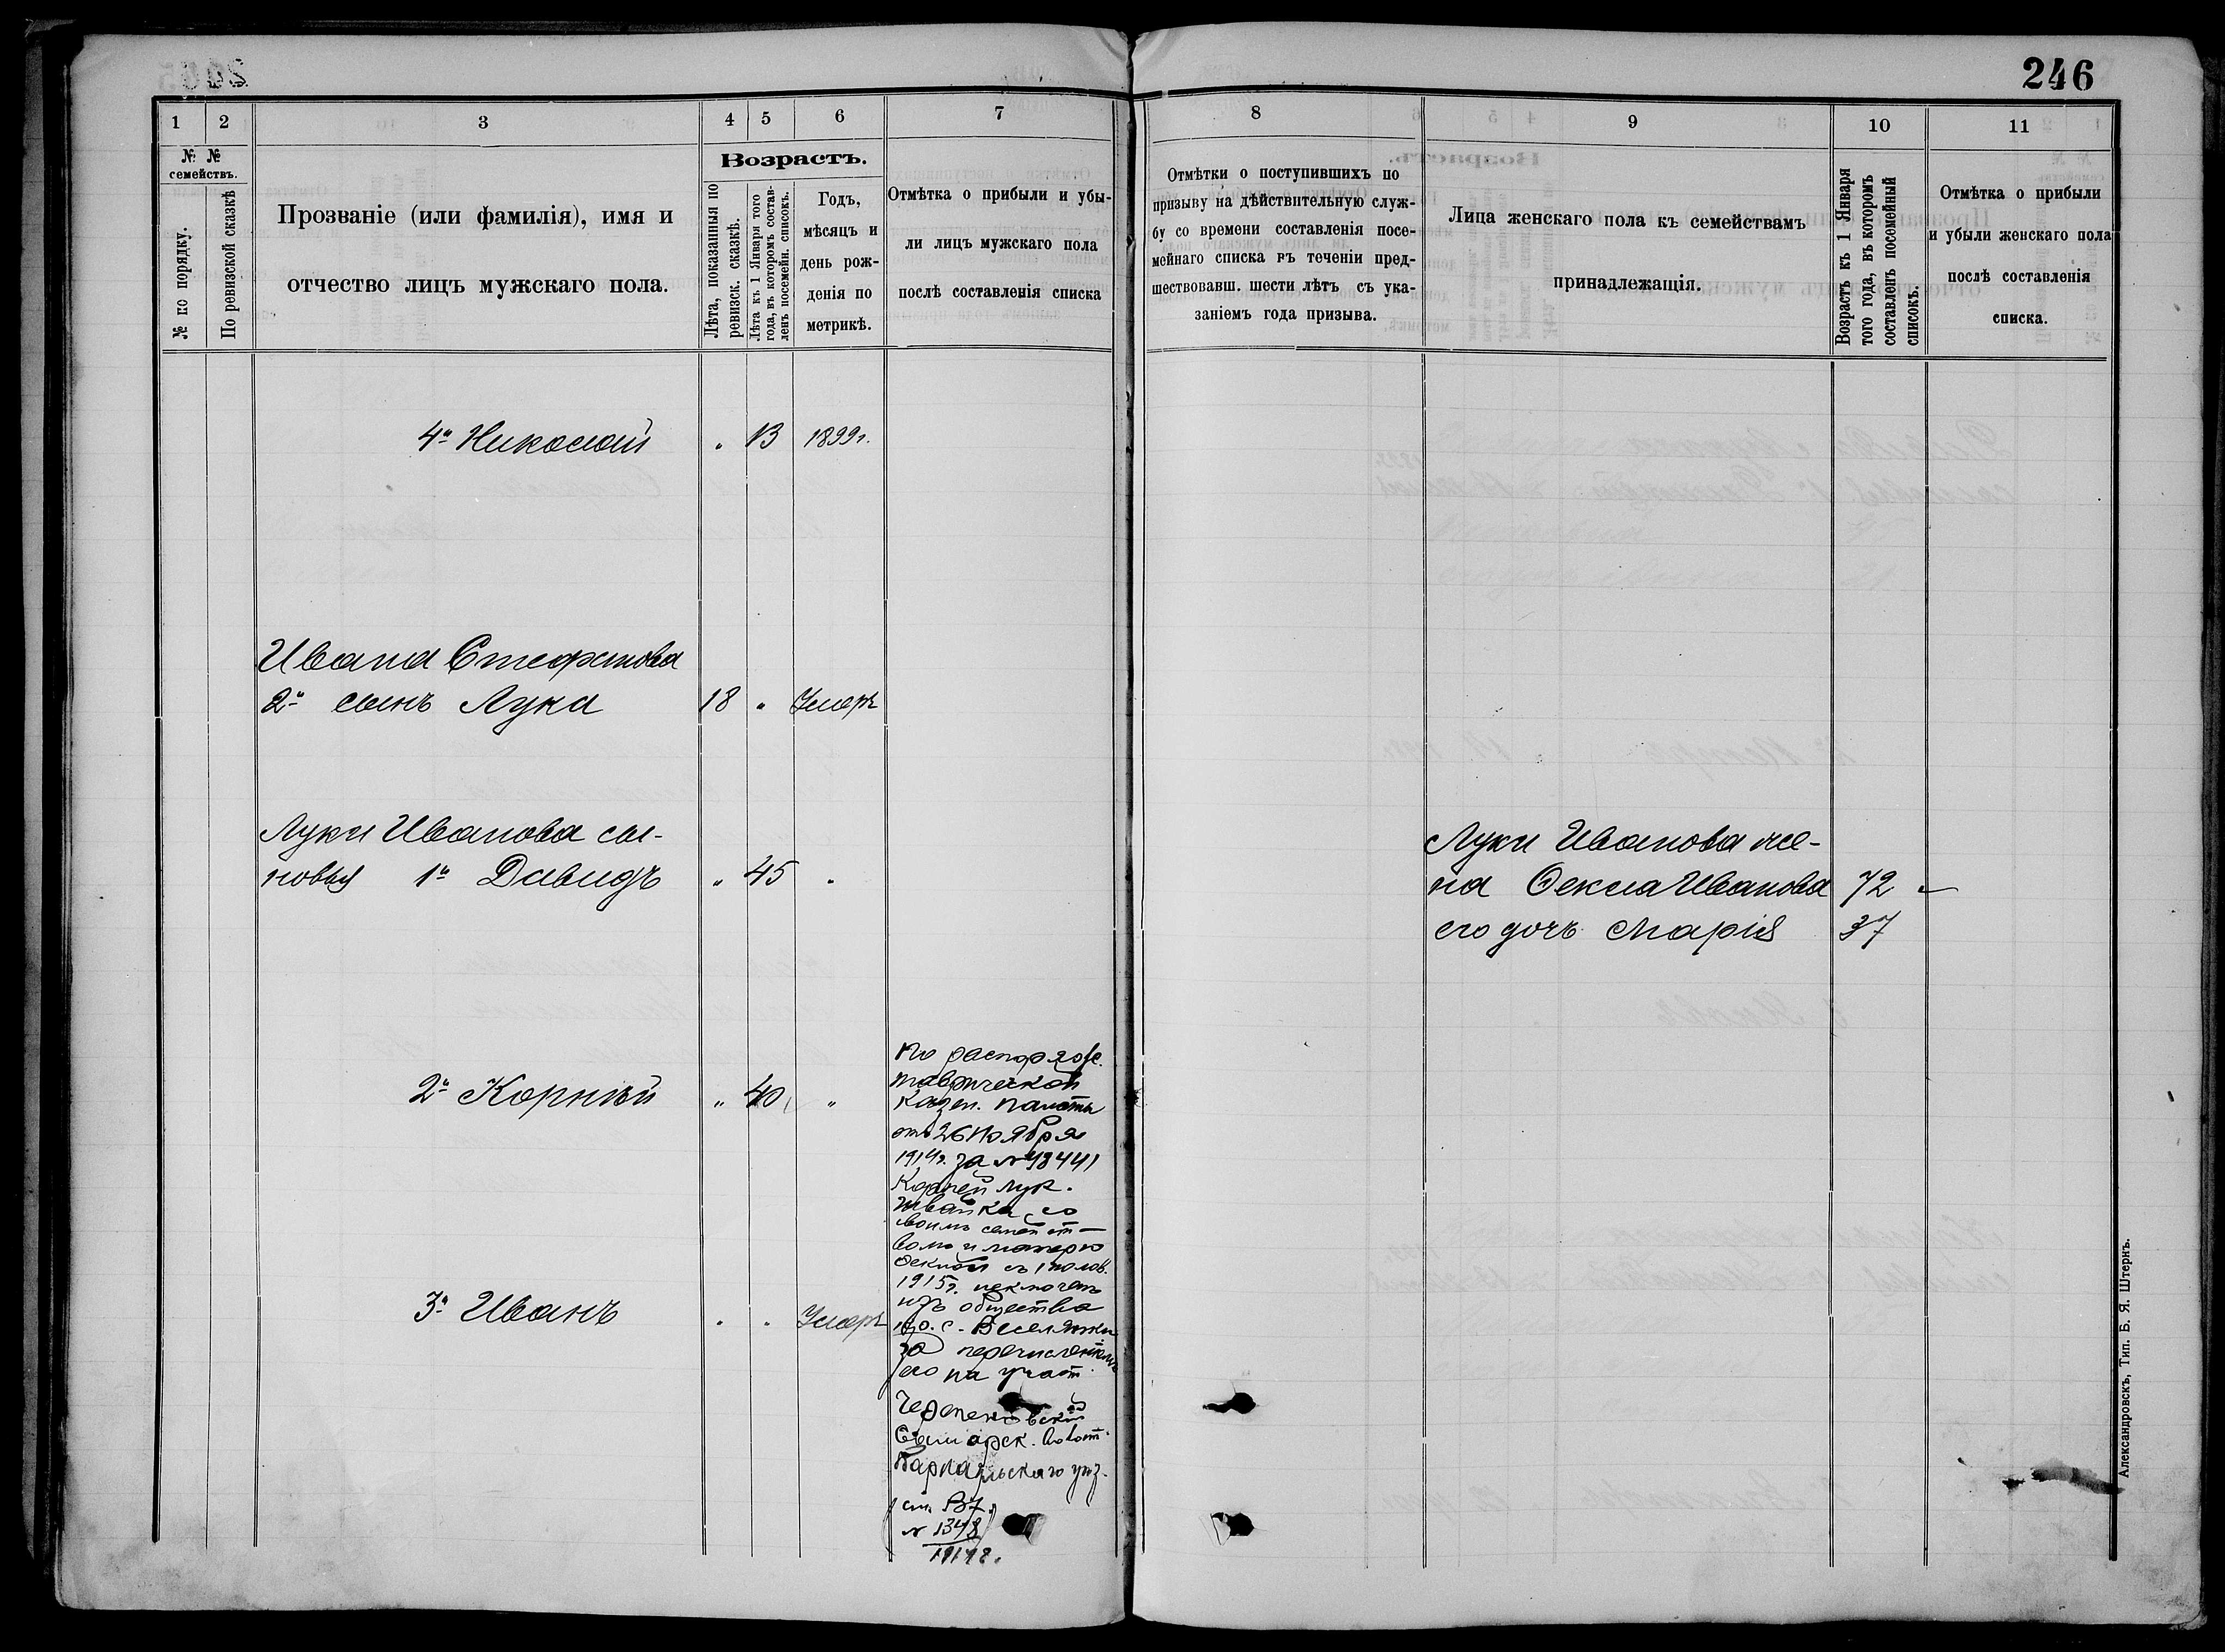 246
1 2 3 4 5 6 7
№ №
семействъ.
№ по порядку.
По ревизской сказкѣ
Прозваніе (или фамилія), имя и
отчество лицъ мужскаго пола.
Возрастъ.
Лѣта, показанныя по
ревизск. сказкѣ.
Лѣта къ 1 Января того
года, въ которомъ состав-
ленъ посемейн. списокъ.
Годъ,
мѣсяцъ и
день рож-
денія по
метрикѣ.
Отмѣтка о прибыли и убы-
ли лицъ мужскаго пола
послѣ составленія списка
4й Николай " 13 1899г.
Ивана Стефанова
2й сынъ Лука 18 " Умеръ
Луки Иванова сы-
новья 1й Давидъ " 45 "
2й Корнѣй " 40 "
3й Иванъ " " Умеръ
По распоряже.
таврической
Казен. палаты
отъ 26 Ноября
1914г. за № 48441
Корней Лук.
со
своимъ семейст-
вомъ и матерью
Феклой съ 1 полов.
1915г. исключенъ
изъ общества
с. Веселянки
за перечисленіемъ
его на участ.
Барнаульскаго уѣз.
ст. 137.
№ 1348
1914г.
8 9 10 11
Отмѣтки о поступившихъ по
призыву на дѣйствительную служ-
бу со времени составленія посе-
мейнаго списка въ теченіи пред-
шествовавш. шести лѣтъ съ ука-
заніемъ года призыва.
Лица женскаго пола къ семействамъ
принадлежащія.
Возрастъ къ 1 Января
того года, въ которомъ
составленъ посемейный
списокъ.
Отмѣтка о прибыли
и убыли женскаго пола
послѣ составленія
списка.
Луки Иванова же-
на Фекла Иванова 72
его дочь Марія 37
Александровскъ, Тип. Б. Я. Штернъ.